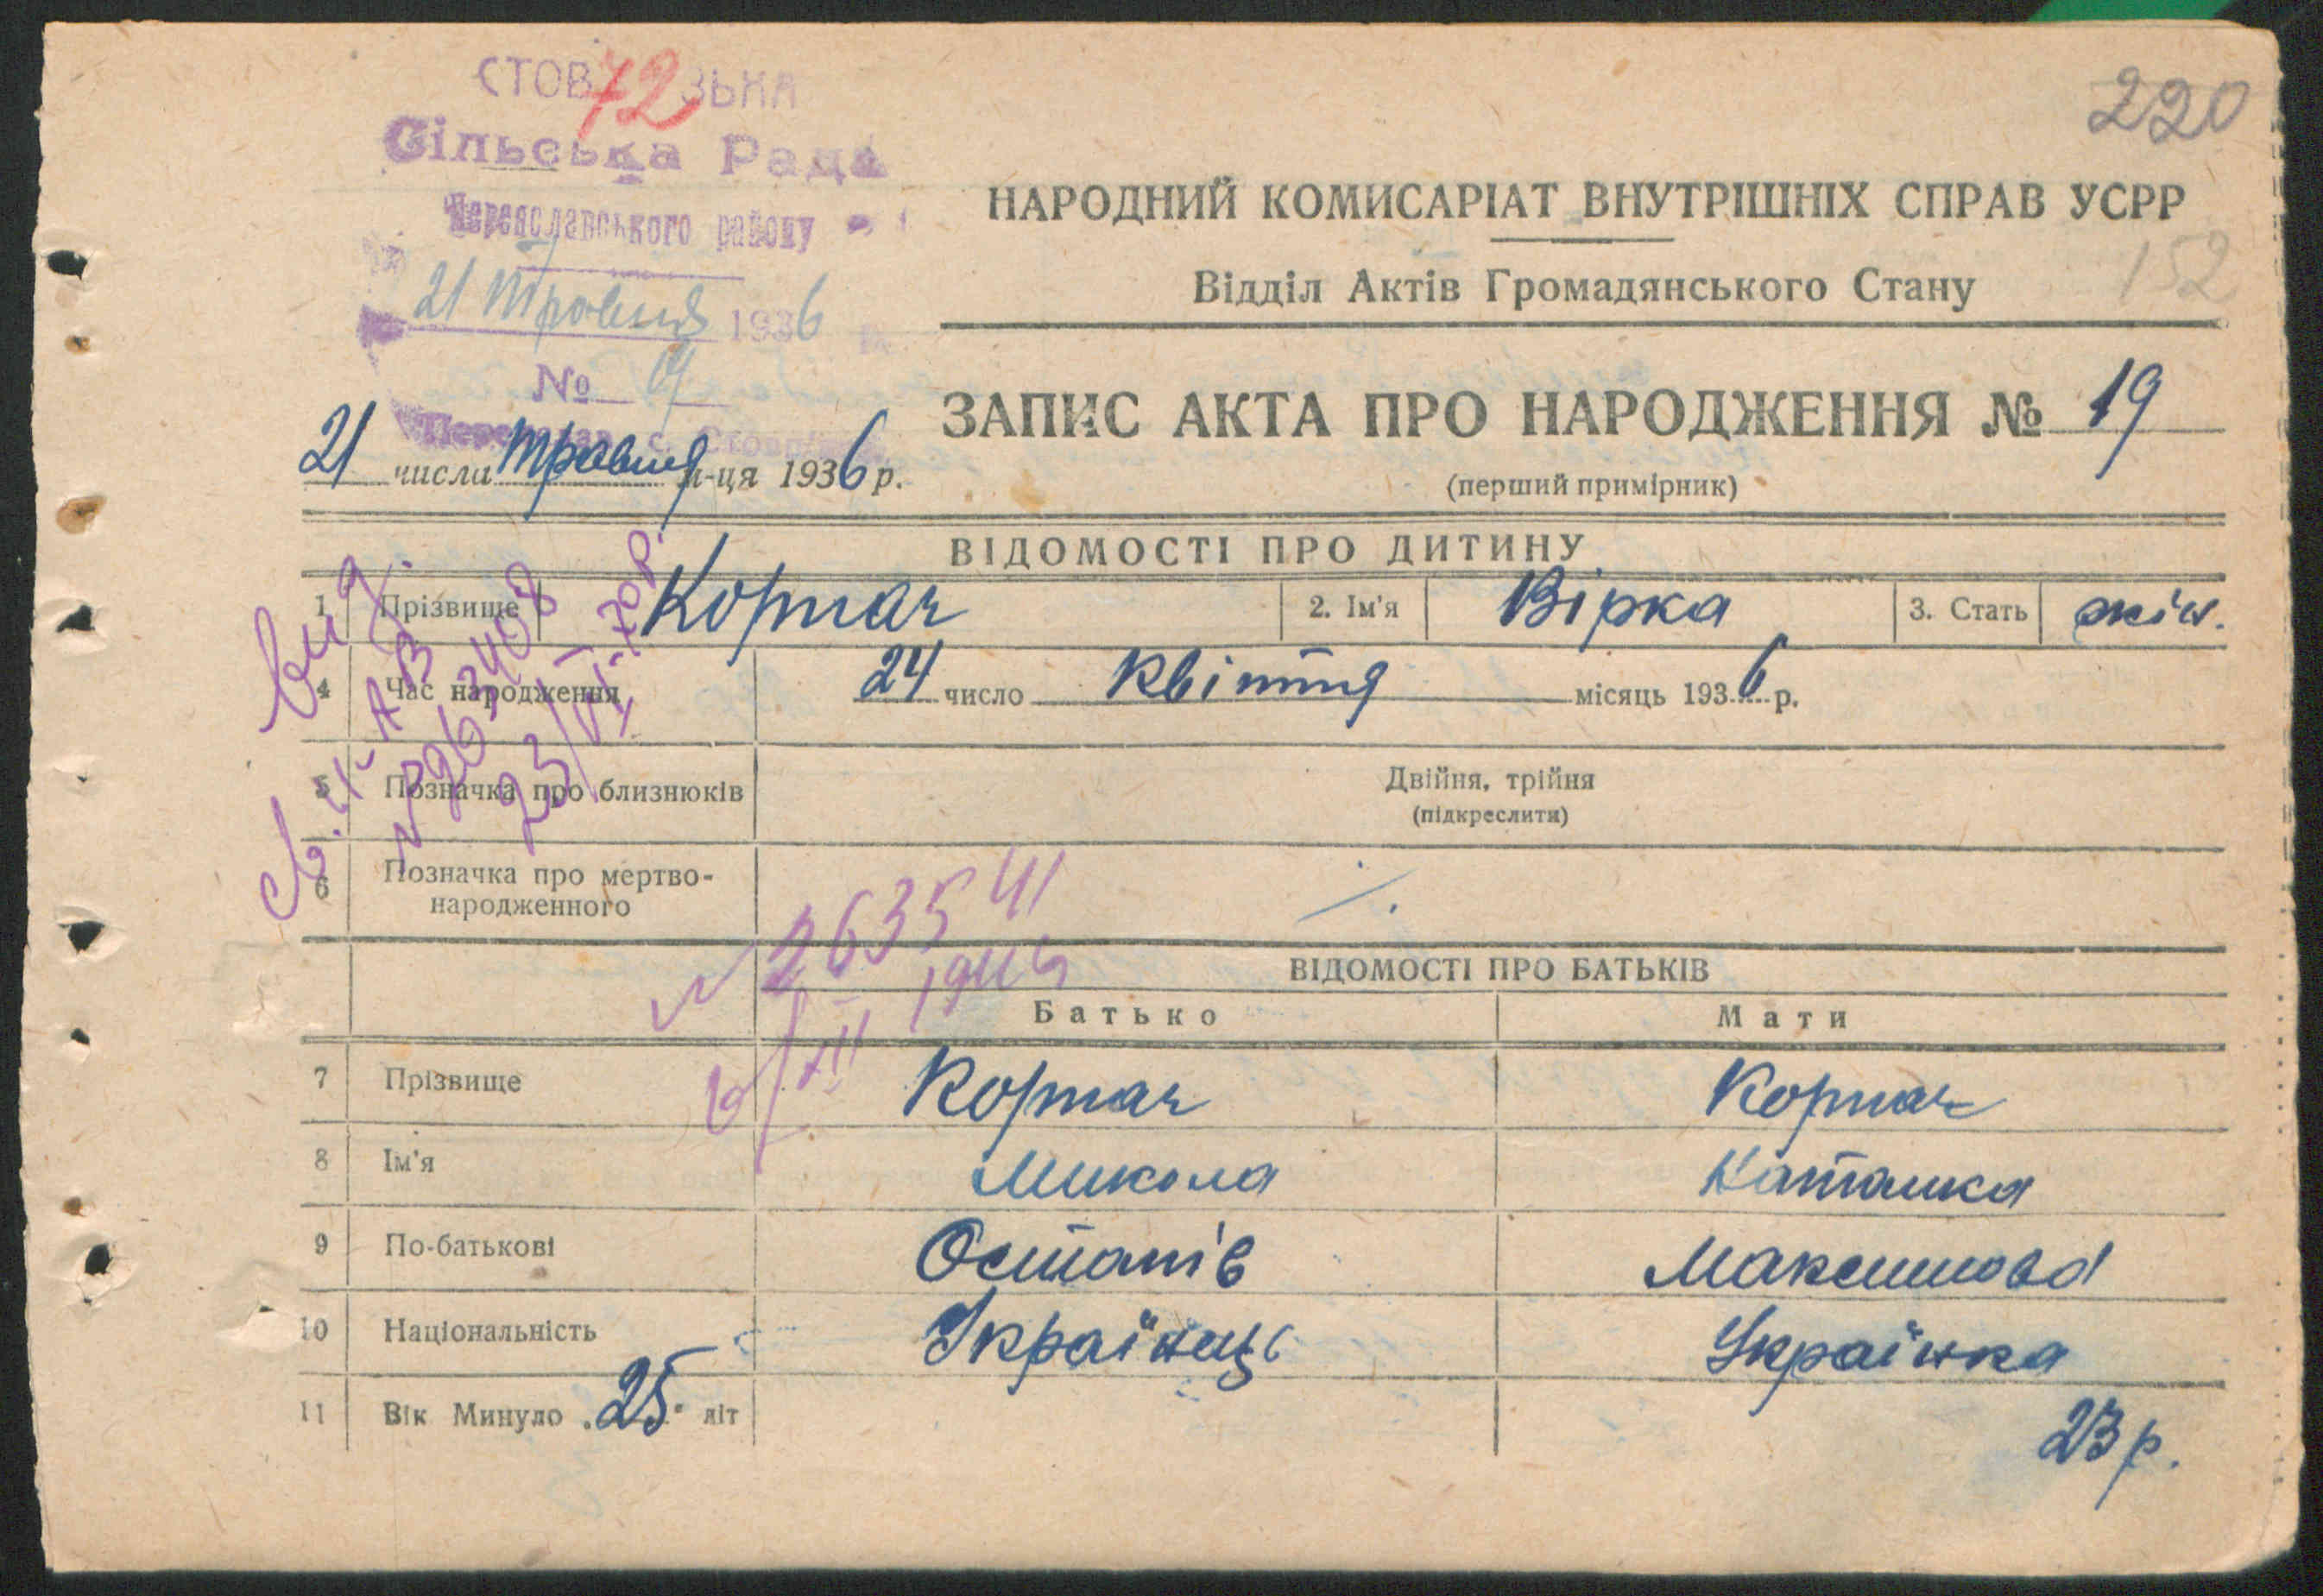 72
220
Сільська Рада
Переяславського району
НАРОДНИЙ КОМИСАРІАТ ВНУТРІШНІХ СПРАВ УСРР
152
Відділ Актів Громадянського Стану
21 травня 1936
№ 19
ЗАПИС АКТА ПРО НАРОДЖЕННЯ № 19
21 числа травня м-ця 1936 р.
(перший примірник)
ВІДОМОСТІ ПРО ДИТИНУ
1 Прізвище Кортач 2. Ім'я Вірка 3. Стать жін.
4 Час народження 24 число квітня місяць 1936 р.
5 Позначка про близнюків Двійня, трійня
(підкреслити)
6 Позначка про мертво-
народженного
№ 263541
6/XII 194
ВІДОМОСТІ ПРО БАТЬКІВ
Батько Мати
7 Прізвище Кортач Кортач
8 Ім'я Микола Наташка
9 По-батькові Остапів Максимова
10 Національність Українець Українка
11 Вік Минуло 25 літ 23 р.